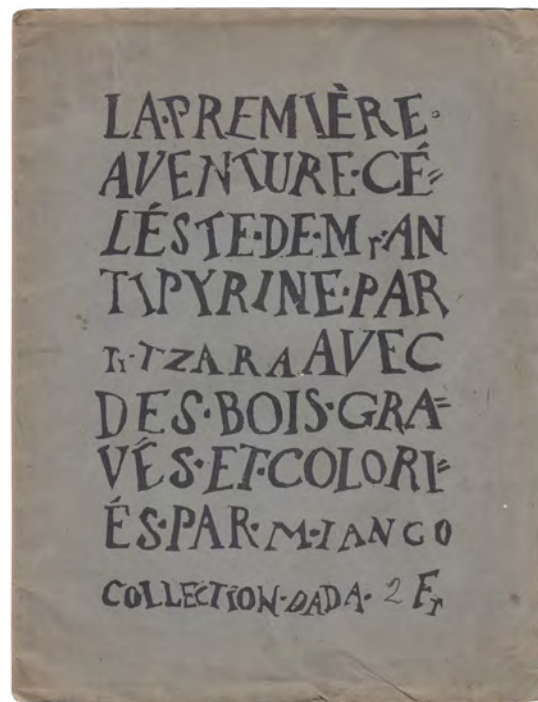 LA·PREMIÈRE·
AVENTURE·CÉ=
LÉSTE·DE·Mr·AN
TIPYRINE·PAR
Tr·TZARA AVEC
DES·BOIS·GRA=
VÉS·ET·COLORI=
ÉS·PAR·M·IANCO
COLLECTION·DADA·2 Fr